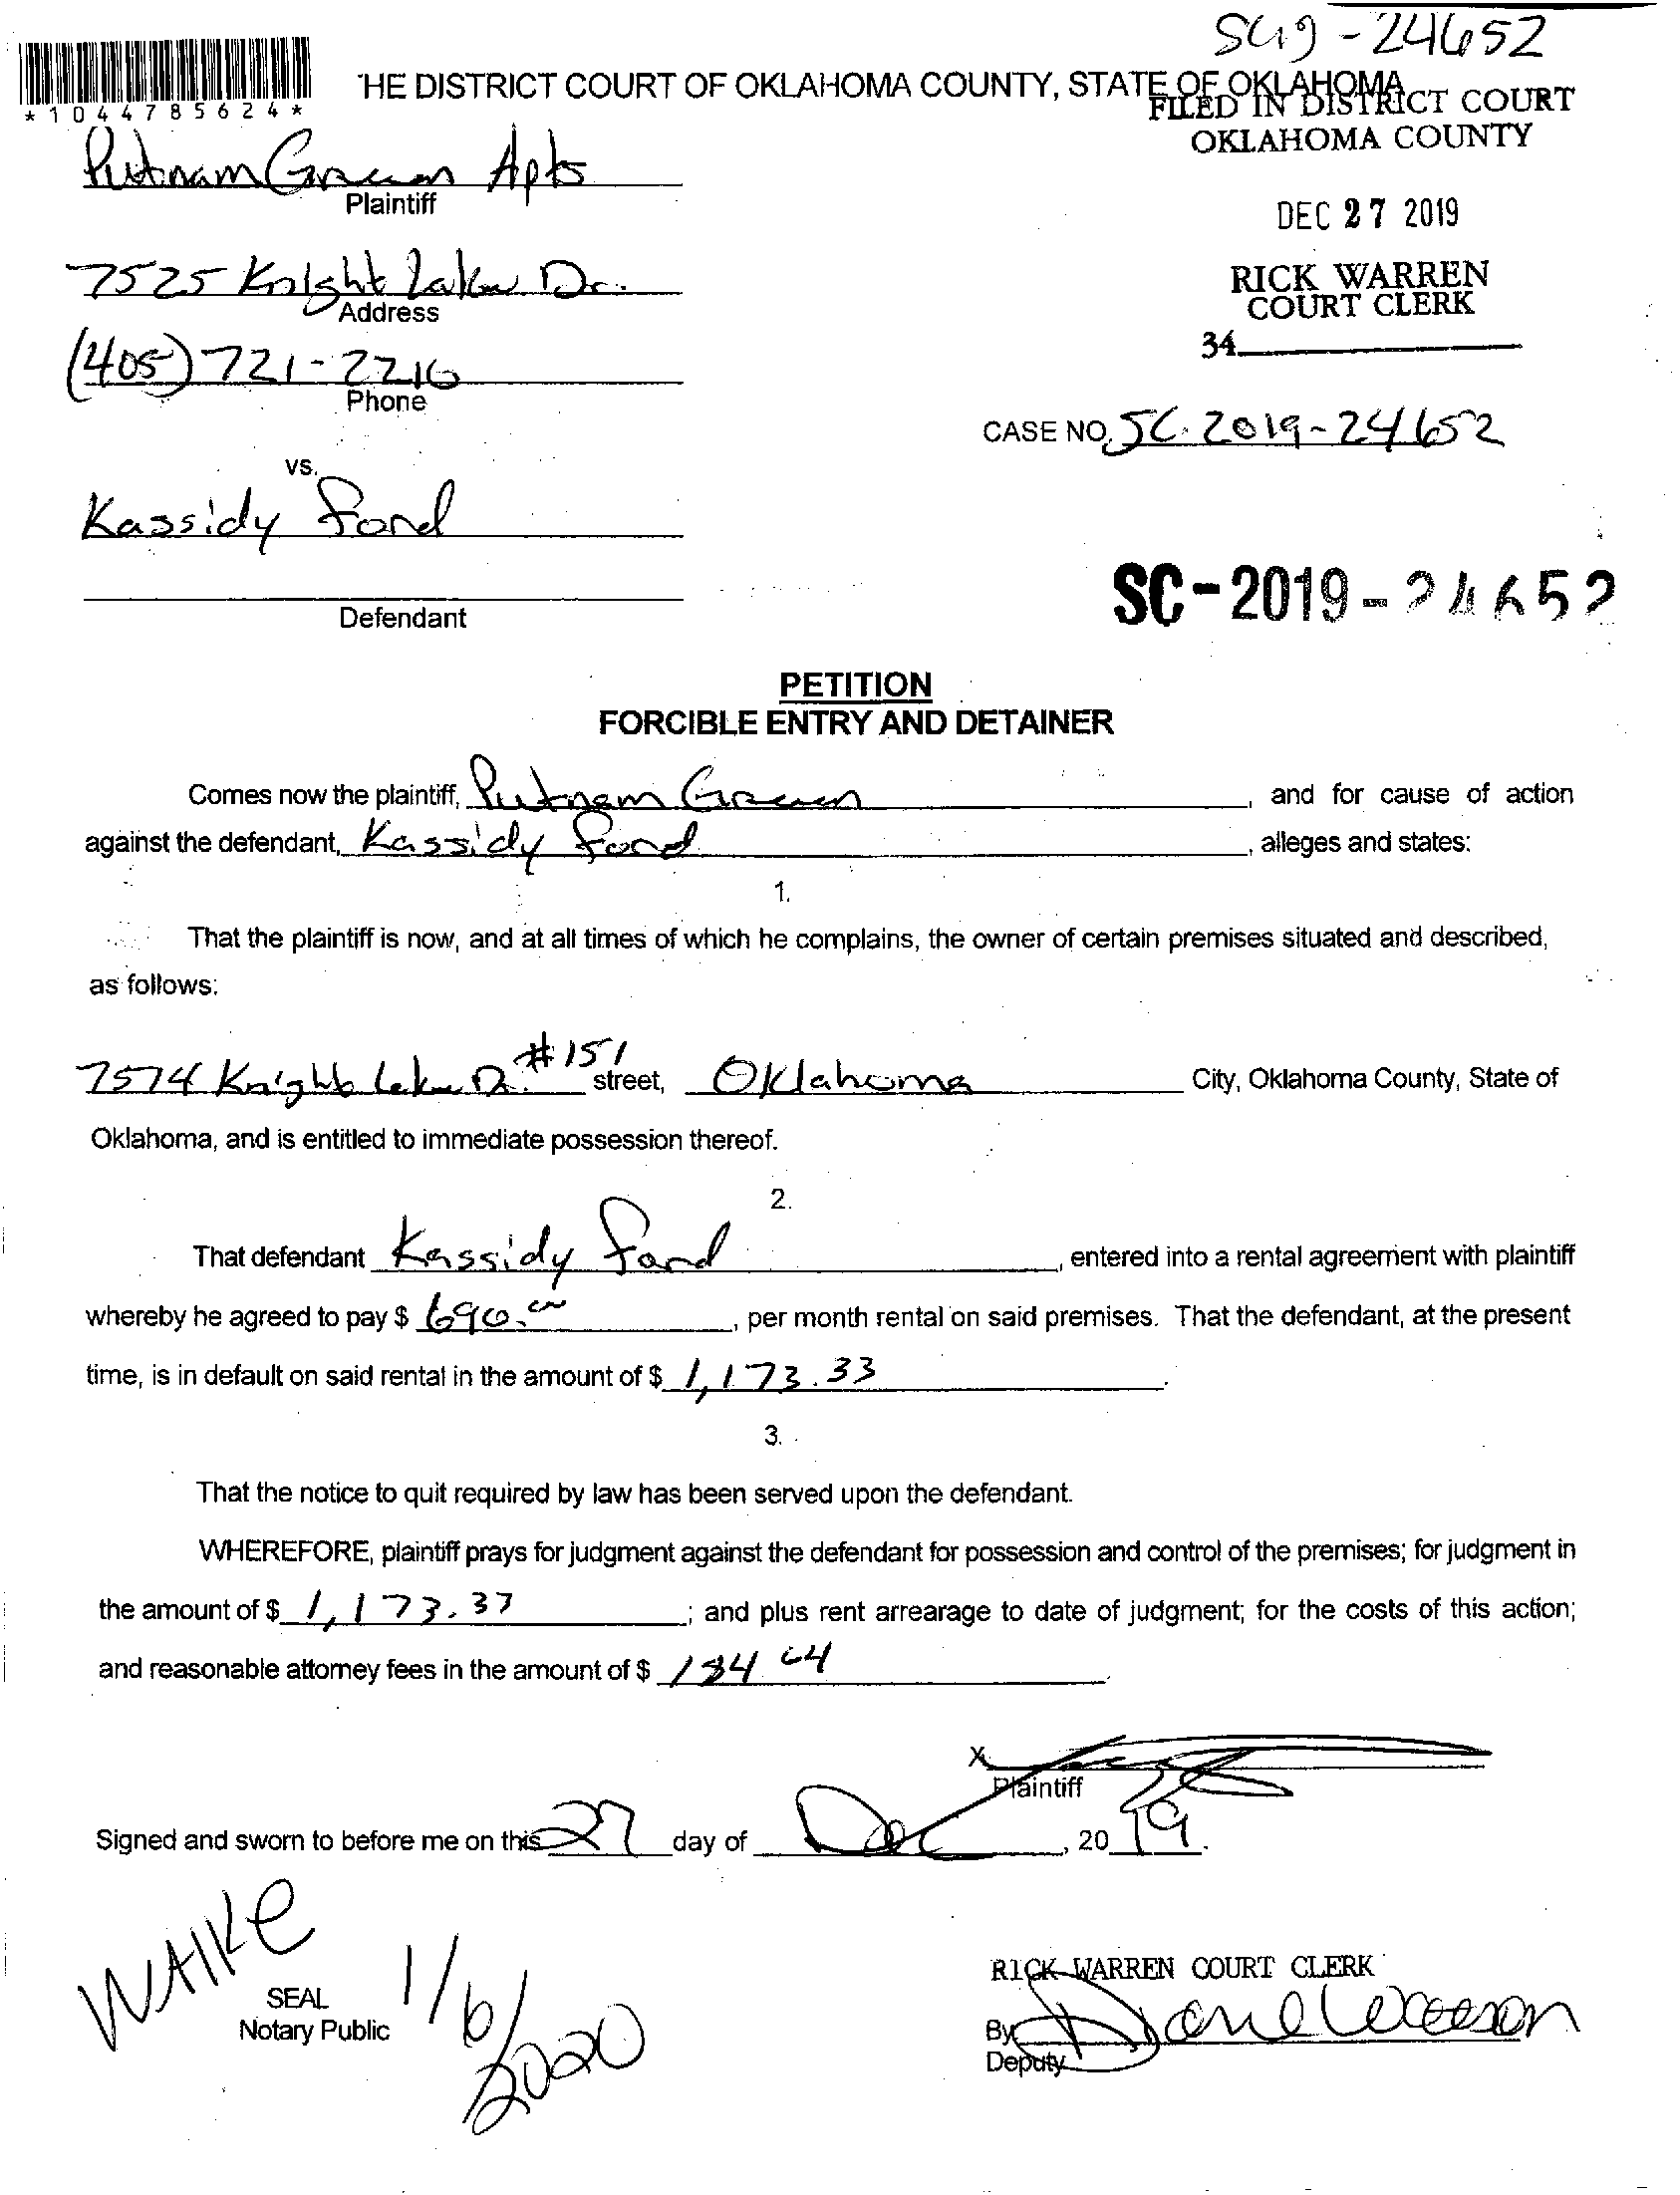 SC19-24652
*1044785624*
THE DISTRICT COURT OF OKLAHOMA COUNTY, STATE OF OKLAHOMA
FILED IN DISTRICT COURT
OKLAHOMA COUNTY
Putnam Green Apts
Plaintiff
DEC 27 2019
7525 Knight Lake Dr.
Address
RICK WARREN
COURT CLERK
34
(405) 721-2216
Phone
CASE NO. SC-2019-24652
vs.
Kassidy Ford
SC-2019-24652
Defendant
PETITION
FORCIBLE ENTRY AND DETAINER
Comes now the plaintiff, Putnam Green, and for cause of action
against the defendant, Kassidy Ford, alleges and states:
1.
That the plaintiff is now, and at all times of which he complains, the owner of certain premises situated and described,
as follows:
7574 Knight Lake Dr. #151 street, Oklahoma City, Oklahoma County, State of
Oklahoma, and is entitled to immediate possession thereof.
2.
That defendant Kassidy Ford, entered into a rental agreement with plaintiff
whereby he agreed to pay $ 690.00, per month rental on said premises. That the defendant, at the present
time, is in default on said rental in the amount of $ 1,173.33.
3.
That the notice to quit required by law has been served upon the defendant.
WHEREFORE, plaintiff prays for judgment against the defendant for possession and control of the premises; for judgment in
the amount of $ 1,173.37; and plus rent arrearage to date of judgment; for the costs of this action;
and reasonable attorney fees in the amount of $ 184
X
Plaintiff
Signed and sworn to before me on this 27 day of Dec, 2019.
WAIKE
1/6/2020
SEAL
Notary Public
RICK WARREN COURT CLERK
By
Deputy